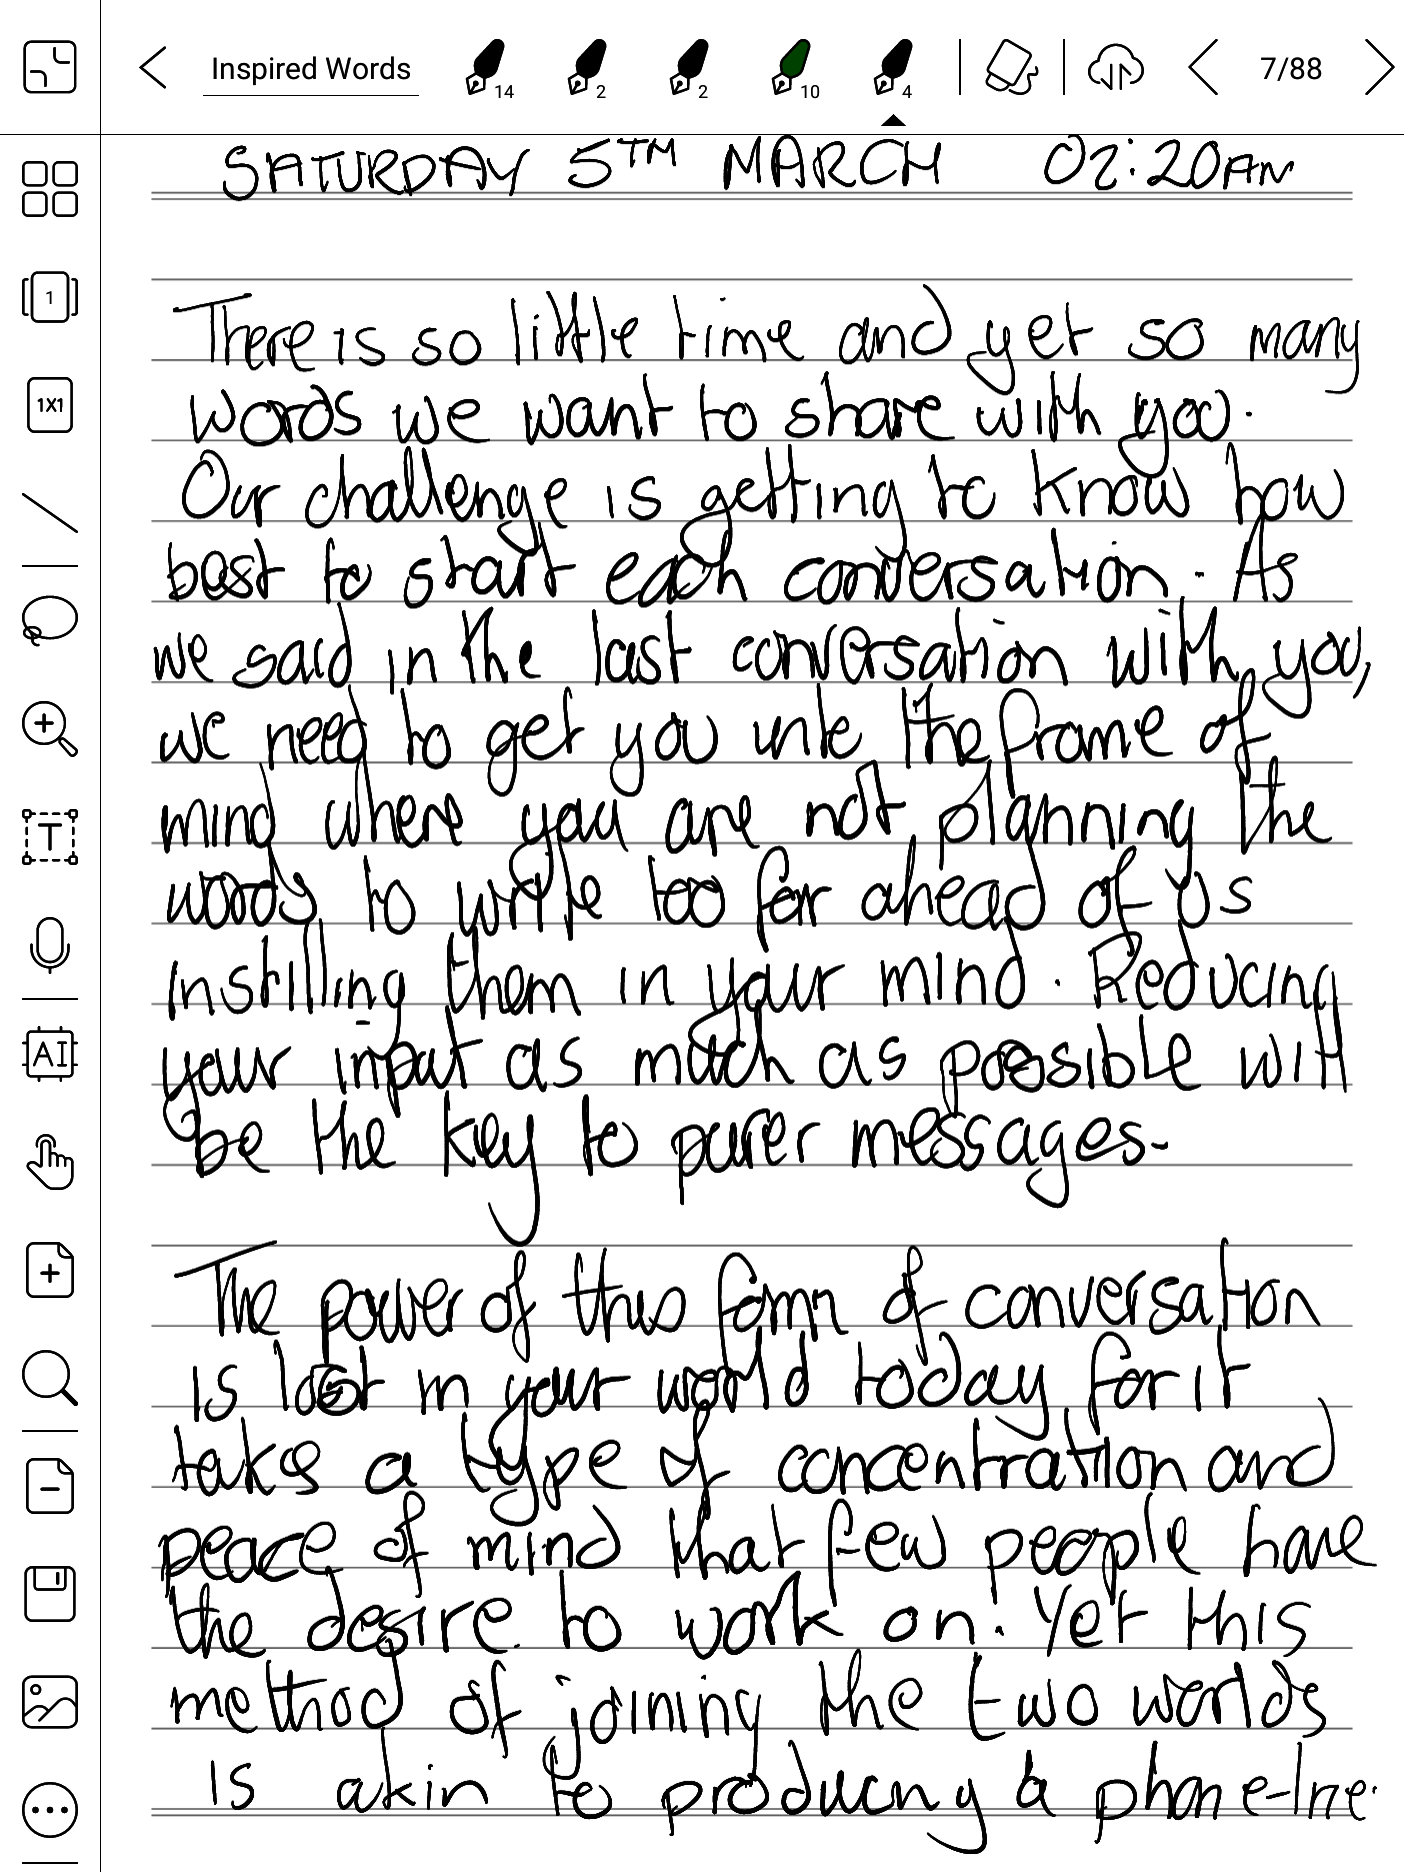 Inspired Words
14
2
2
10
4
7/88
SATURDAY 5TH MARCH 02:20AM
1
There is so little time and yet so many
1X1
words we want to share with you.
Our challenge is getting to know how
best to start each conversation. As
we said in the last conversation with you,
we need to get you into the frame of
mind where you are not planning the
T
words to write too far ahead of us
instilling them in your mind. Reducing
AI
your input as much as possible will
be the key to purer messages.
The power of this form of conversation
is lost in your world today for it
takes a type of concentration and
peace of mind that few people have
the desire to work on. Yet this
method of joining the two worlds
is akin to producing a phone-line.